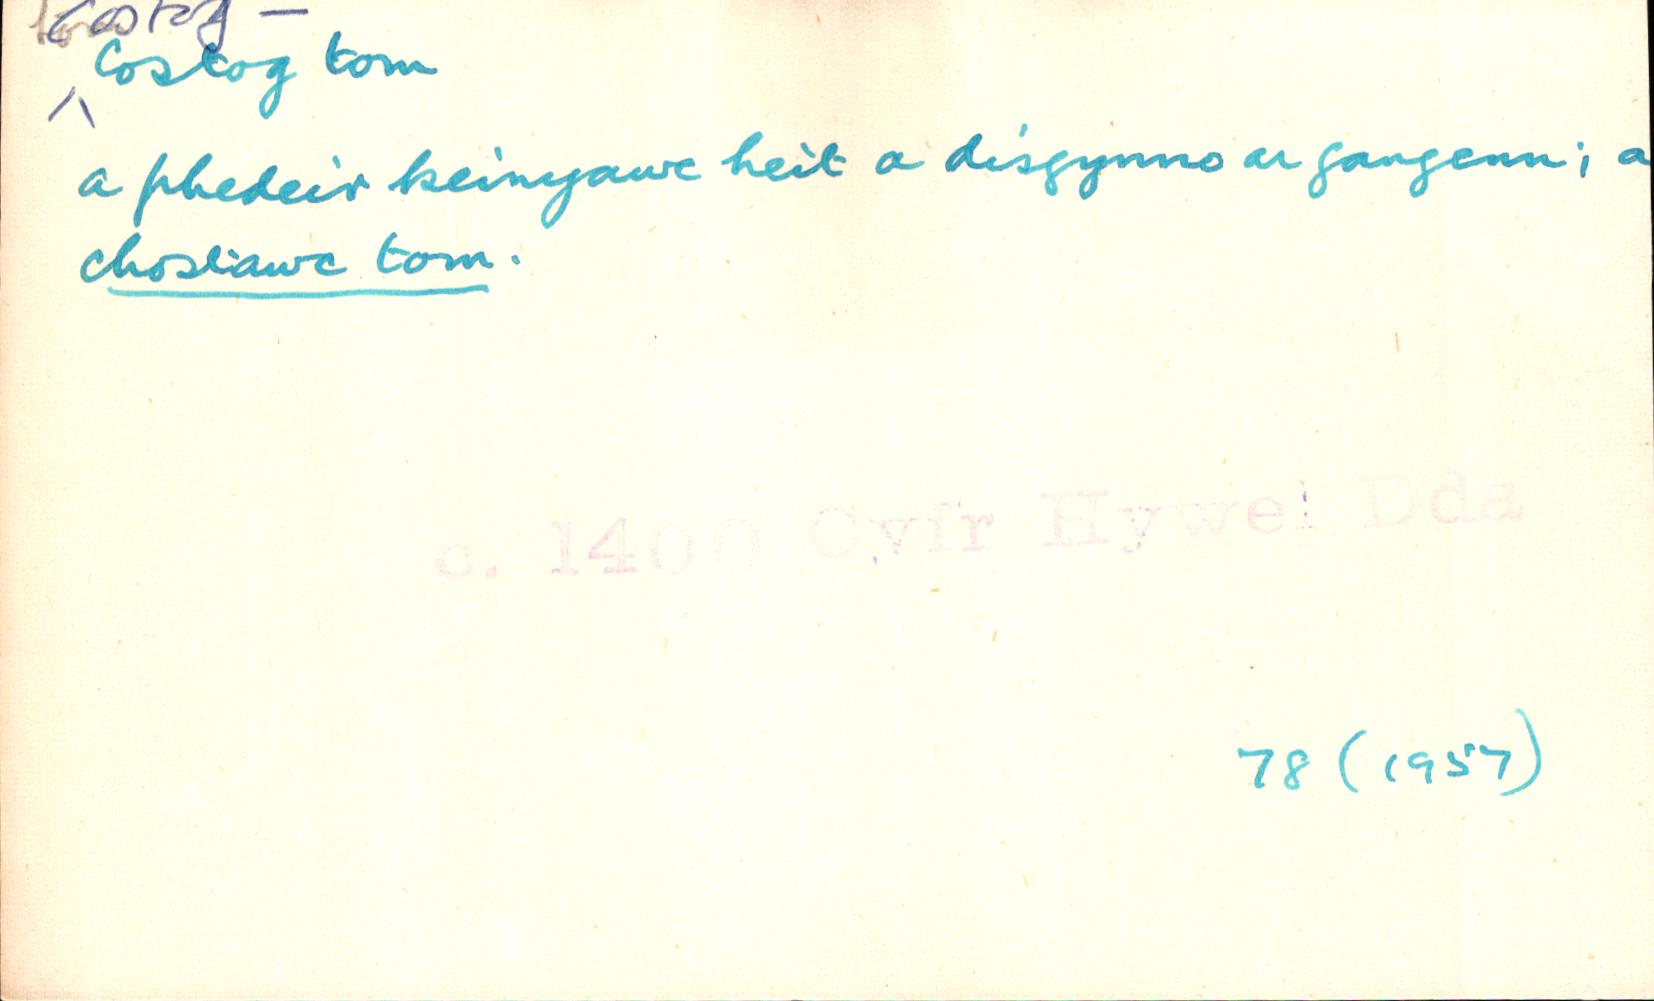 costog —
Costog tom
a phedeir keinyawc heit a disgynno ar gangenn; a
chostawc tom.
c. 1400 Cyfr Hywel Dda
78 (1957)